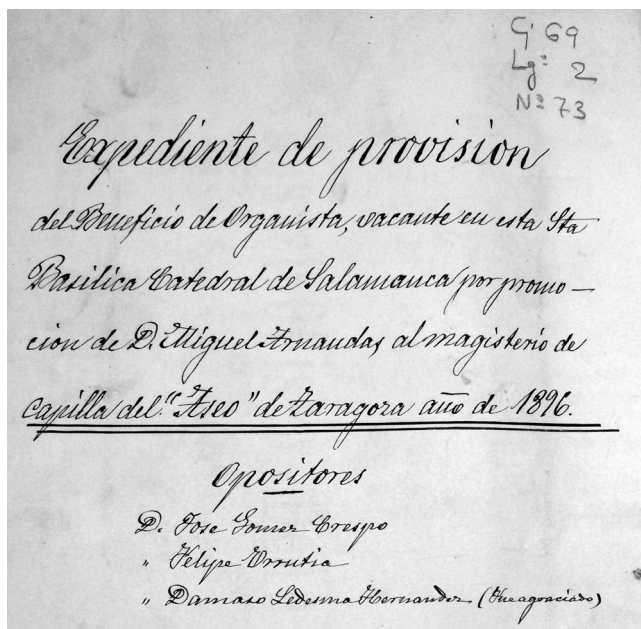 G. 69
Lg: 2
Nº 73
Expediente de provision
del Beneficio de Organista, vacante en esta Sta
Basilica Catedral de Salamanca por promo-
cion de D. Miguel Arnaudas al magisterio de
capilla del "Aseo" de Zaragoza año de 1896.
Opositores
D. Jose Gomez Crespo
" Felipe Urrutia
" Damaso Ledesma Hernandez (Fue agraciado)